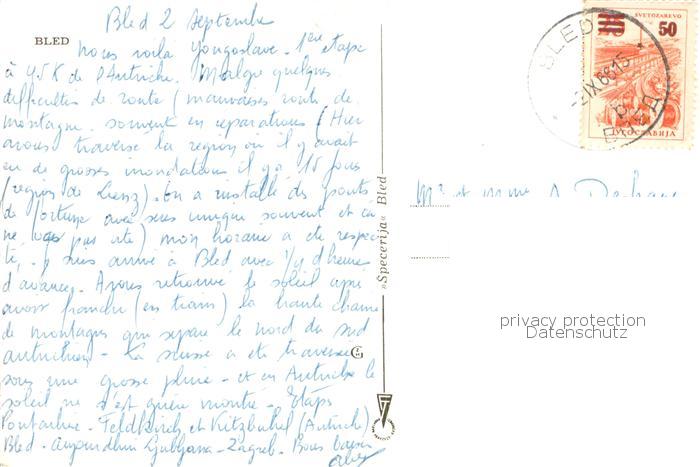 Bled 2 septembre
BLED
nous voila Yougoslave - 1ere etape
à 45K de l'Autriche. Malgre quelques
difficultes de route (mauvaises routes de
montagne souvent en reparations (Hier
avons traverse la region ou il y avait
eu de grosses inondations il y a 15 jours
(region de Lienz). On a installe des ponts
de fortune avec sens unique souvent et ca
ne va pas vite) mon horaire a ete respec
té, j'y suis arrivé à Bled avec 1/4 d'heure
d'avance. Avons retrouvé le soleil apres
avoir franchi (en train) la haute chaine
de montagnes qui separe le nord du sud
autrichien - La suisse a ete traversee
sous une grosse pluie - et en Autriche le
soleil ne s'est guère montré - Etapes
Pontarlier - Feldkirch et Kitzbuhel (Autriche)
Bled - aujourdhui Ljubljana - Zagreb. Bons baisers
»Specerija« Bled
SVETOZAREVO
50
JUGOSLAVIJA
BLED
-2.IX.66.15
BLED
Mr et mme A.
privacy protection
Datenschutz